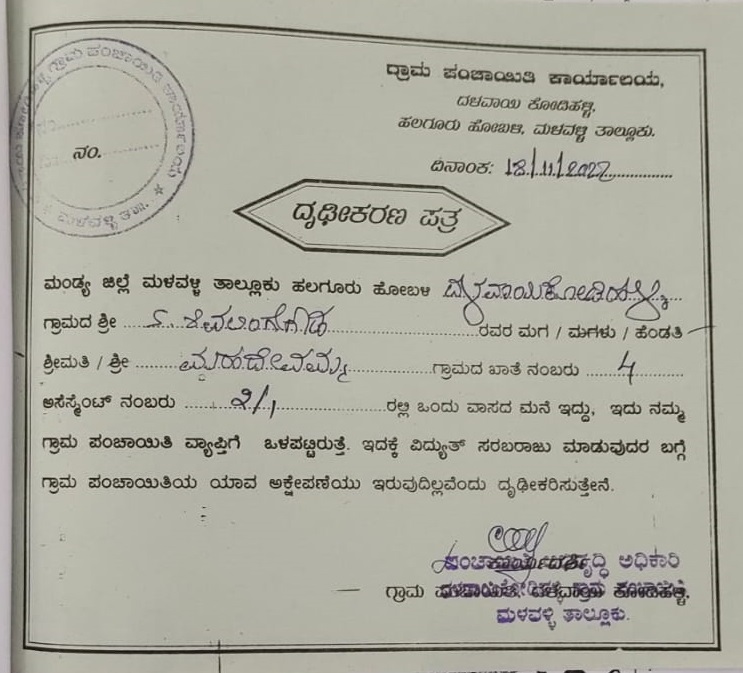 ಗ್ರಾಮ ಪಂಚಾಯಿತಿ ಕಾರ್ಯಾಲಯ,
ದಳವಾಯಿ ಕೋಡಿಹಳ್ಳಿ,
ಹಲಗೂರು ಹೋಬಳಿ, ಮಳವಳ್ಳಿ ತಾಲ್ಲೂಕು.
ನಂ.
ದಿನಾಂಕ: 18/11/2022
ದೃಢೀಕರಣ ಪತ್ರ
ಮಂಡ್ಯ ಜಿಲ್ಲೆ ಮಳವಳ್ಳಿ ತಾಲ್ಲೂಕು ಹಲಗೂರು ಹೋಬಳಿ ದಳವಾಯಿಕೋಡಿಹಳ್ಳಿ
ಗ್ರಾಮದ ಶ್ರೀ ಶಿವಲಿಂಗೇಗೌಡ ರವರ ಮಗ / ಮಗಳು / ಹೆಂಡತಿ
ಶ್ರೀಮತಿ / ಶ್ರೀ ಮಹದೇವಮ್ಮ ಗ್ರಾಮದ ಖಾತೆ ನಂಬರು 4
ಅಸೆಸ್ಮೆಂಟ್ ನಂಬರು 2/1 ರಲ್ಲಿ ಒಂದು ವಾಸದ ಮನೆ ಇದ್ದು, ಇದು ನಮ್ಮ
ಗ್ರಾಮ ಪಂಚಾಯಿತಿ ವ್ಯಾಪ್ತಿಗೆ ಒಳಪಟ್ಟಿರುತ್ತೆ. ಇದಕ್ಕೆ ವಿದ್ಯುತ್ ಸರಬರಾಜು ಮಾಡುವುದರ ಬಗ್ಗೆ
ಗ್ರಾಮ ಪಂಚಾಯಿತಿಯ ಯಾವ ಅಕ್ಷೇಪಣೆಯು ಇರುವುದಿಲ್ಲವೆಂದು ದೃಢೀಕರಿಸುತ್ತೇನೆ.
ಅಧಿಕಾರಿ
ಗ್ರಾಮ ದಳವಾಯಿ ಕೋಡಿಹಳ್ಳಿ.
ಮಳವಳ್ಳಿ ತಾಲ್ಲೂಕು.